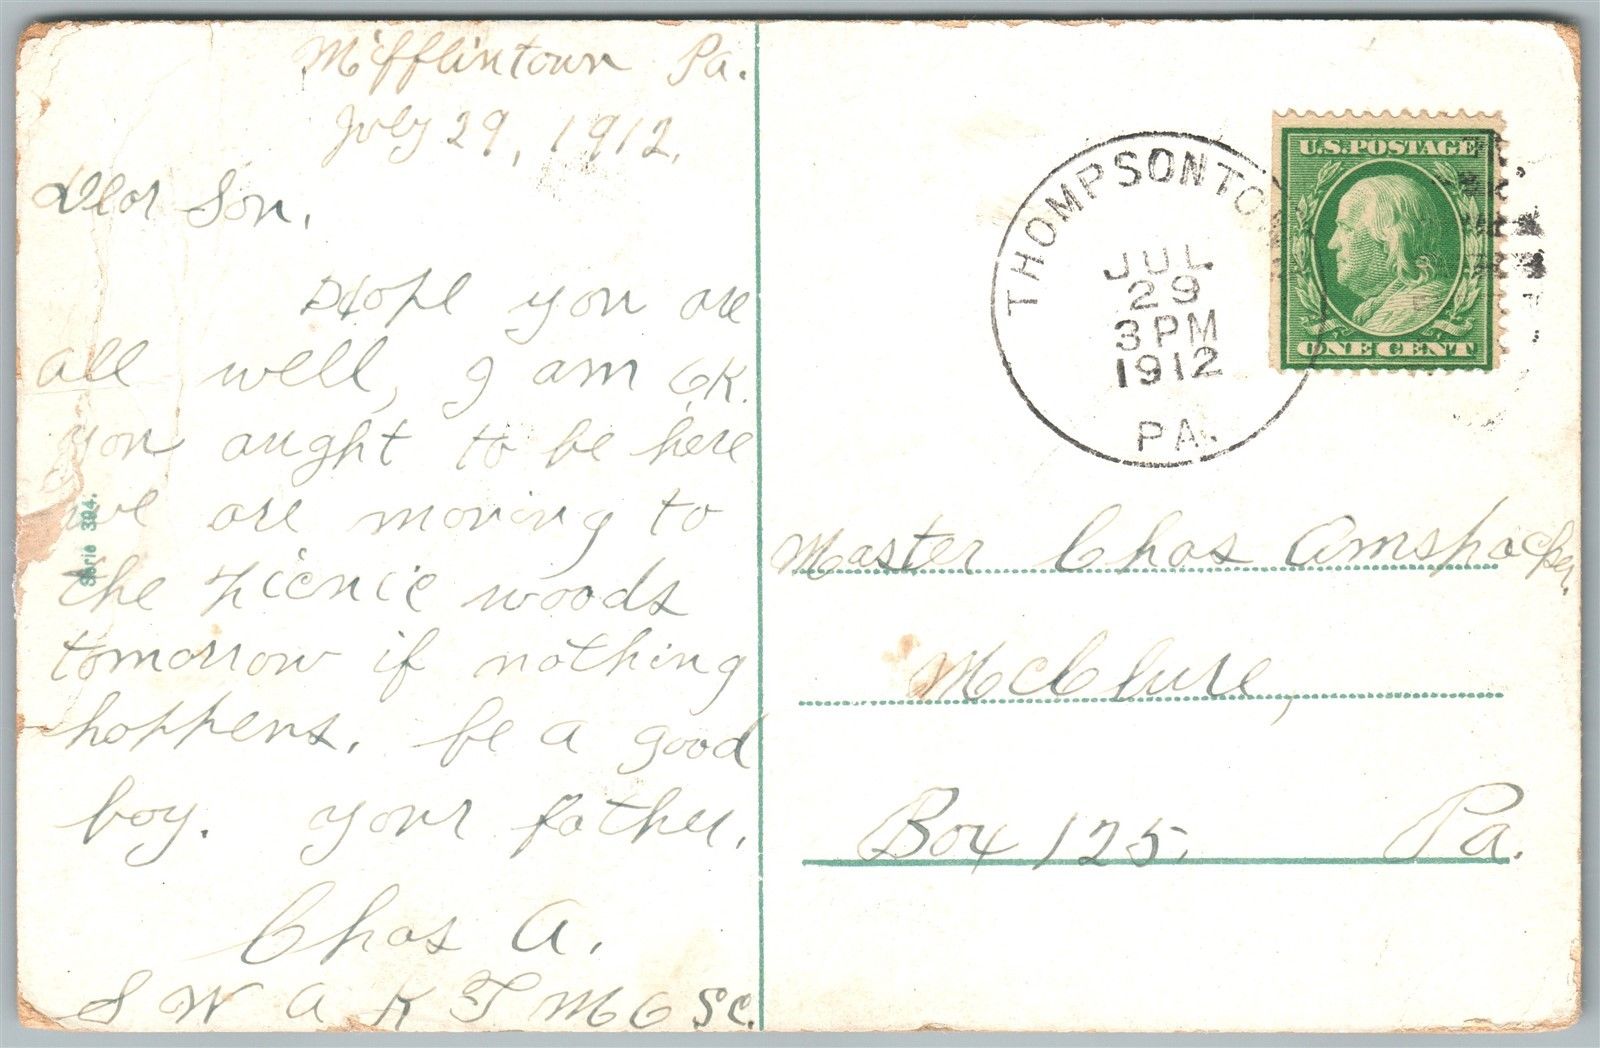 Mifflintown Pa.
July 29, 1912.
Dear Son.
Hope you are
all well, I am OK.
you aught to be here
we are moving to
the Picnic woods
tomorrow if nothing
happens. be a good
boy. your father.
Chas A.
S W A K T M
Serie 394.
THOMPSONTOWN
JUL
29
3 PM
1912
PA.
U.S. POSTAGE
ONE CENT
Master Chas Amspacher.
McClure,
Box 125. Pa.